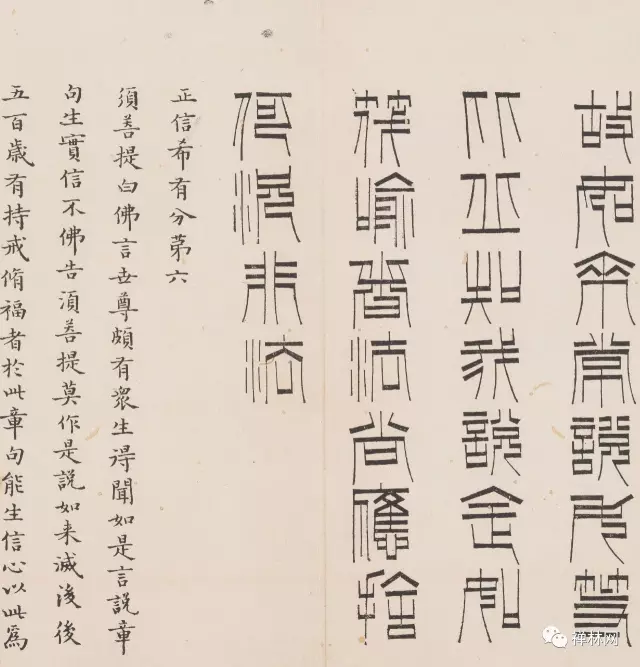 故如來常說汝等
比丘知我說法如
筏喻者法尚應捨
何況非法
正信希有分第六
須菩提白佛言世尊頗有衆生得聞如是言說章
句生實信不佛告須菩提莫作是說如来滅後後
五百歲有持戒脩福者於此章句能生信心以此爲
禅林网